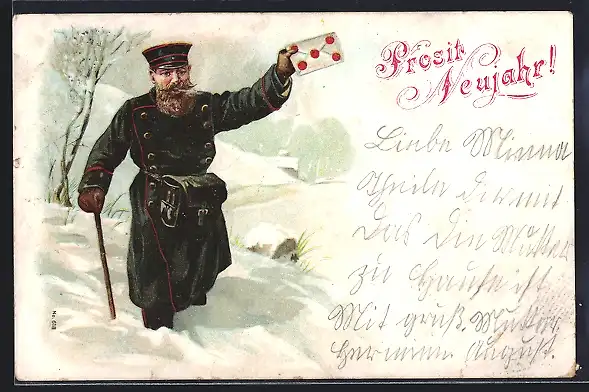 Prosit
Neujahr!
Liebe Minna
Theile dir mit
das die Mutter
zu Hause ist
Mit gruß. Mutter,
Hermine August.
No. 618